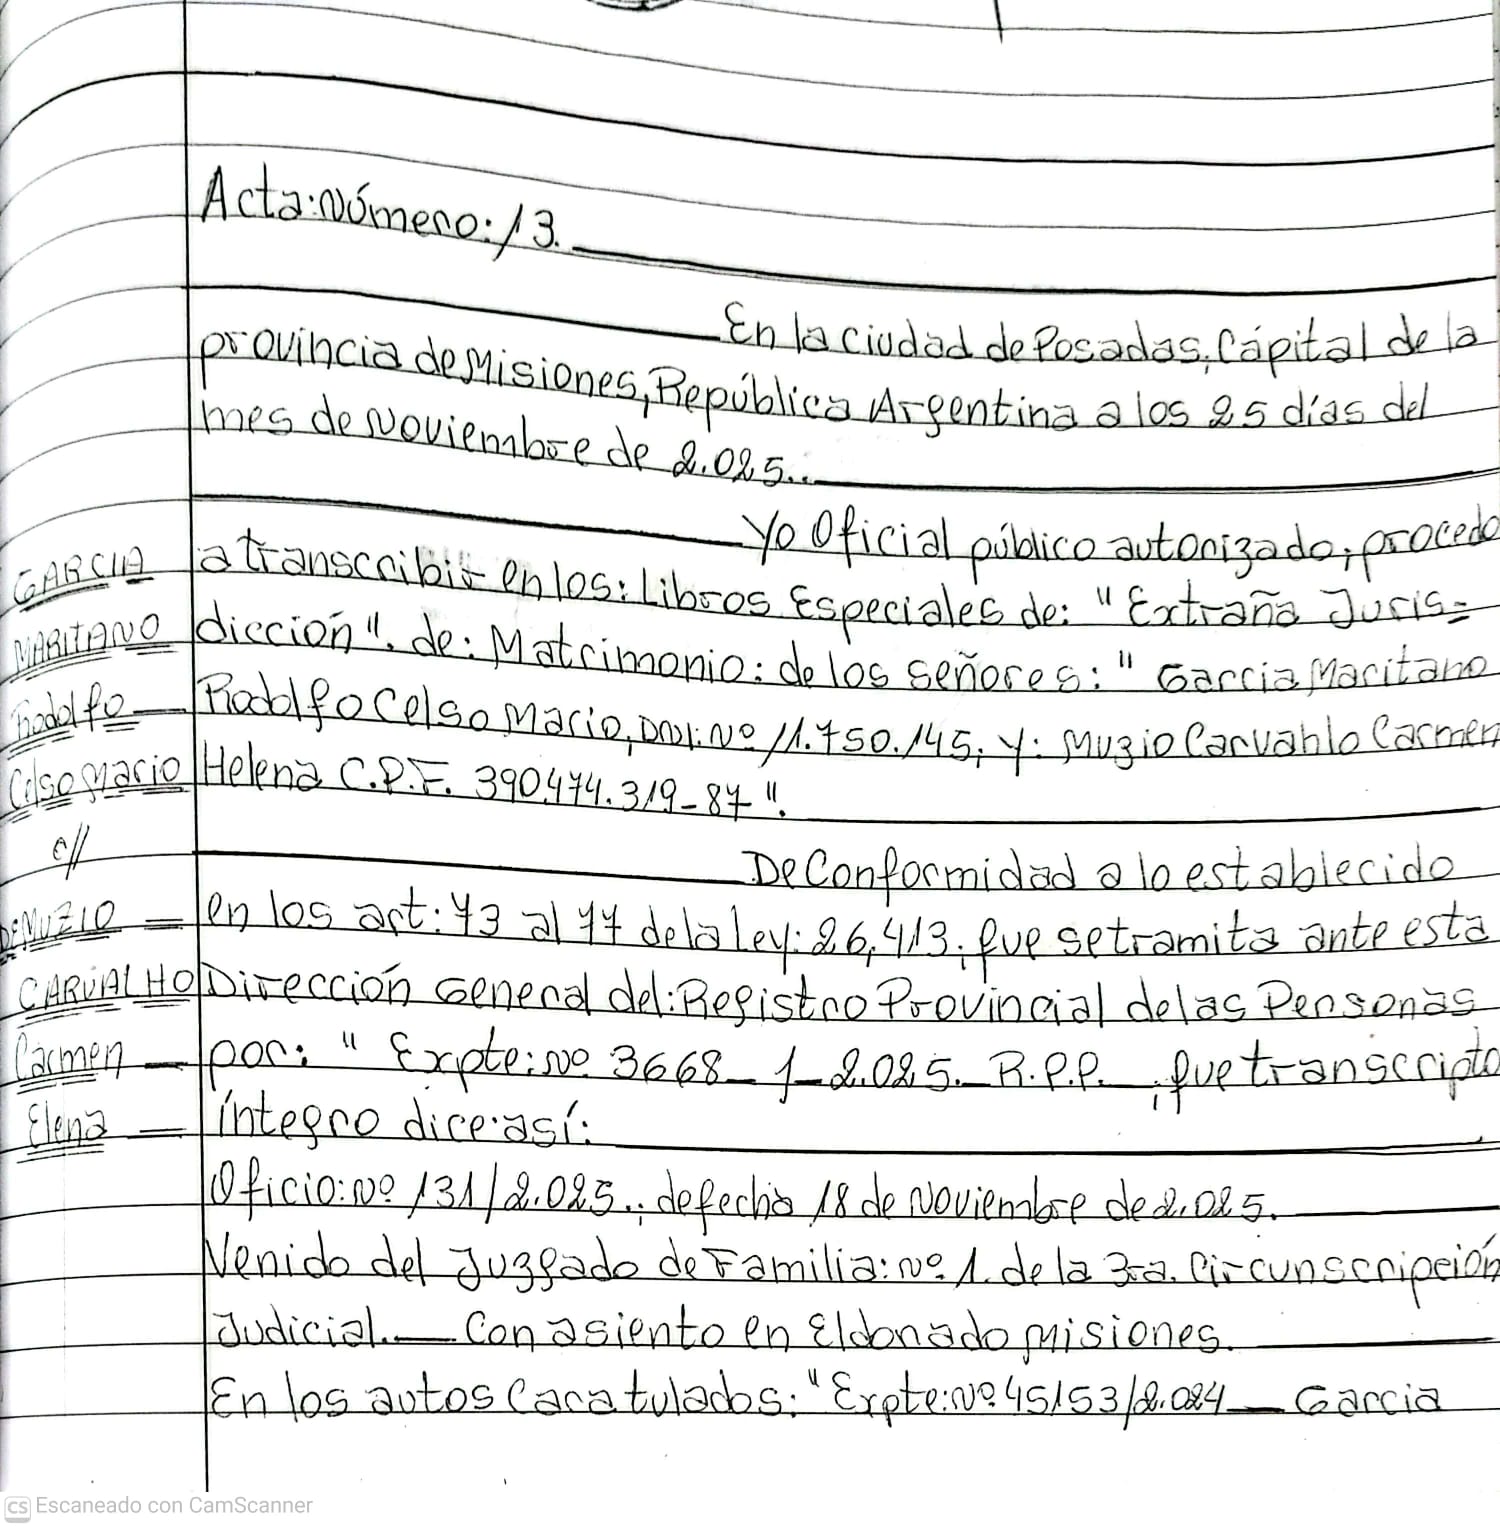 Acta: Número: 13.
En la ciudad de Posadas, Cápital de la
provincia de Misiones, República Argentina a los 25 días del
mes de Noviembre de 2.025..
Yo Oficial público autorizado, procedo
a transcribir en los: Libros Especiales de: "Extraña Juris=
dicción". de: Matrimonio: de los señores: " Garcia Maritano
Rodolfo Celso Mario, DNI: Nº 11.750.145, Y: Muzio Carvahlo Carmen
Helena C.P.F. 390.474.319-87".
De Conformidad a lo establecido
en los art: 73 al 77 de la Ley: 26,413, que se tramita ante esta
Dirección General del: Registro Provincial de las Personas
por: " Expte: Nº 3668_ 1_ 2.025._ R.P.P._, que transcripto
íntegro dice así:
Oficio: Nº 131/2.025., de fecha 18 de Noviembre de 2.025.
Venido del Juzgado de Familia: Nº 1. de la 3ra. Circunscripción
Judicial._ Con asiento en Eldorado Misiones.
En los autos Caratulados: "Expte: Nº 45153/2.024_ Garcia
GARCIA
MARITANO
Rodolfo
Celso Mario
c//
DE MUZIO
CARVALHO
Carmen
Elena
CS Escaneado con CamScanner